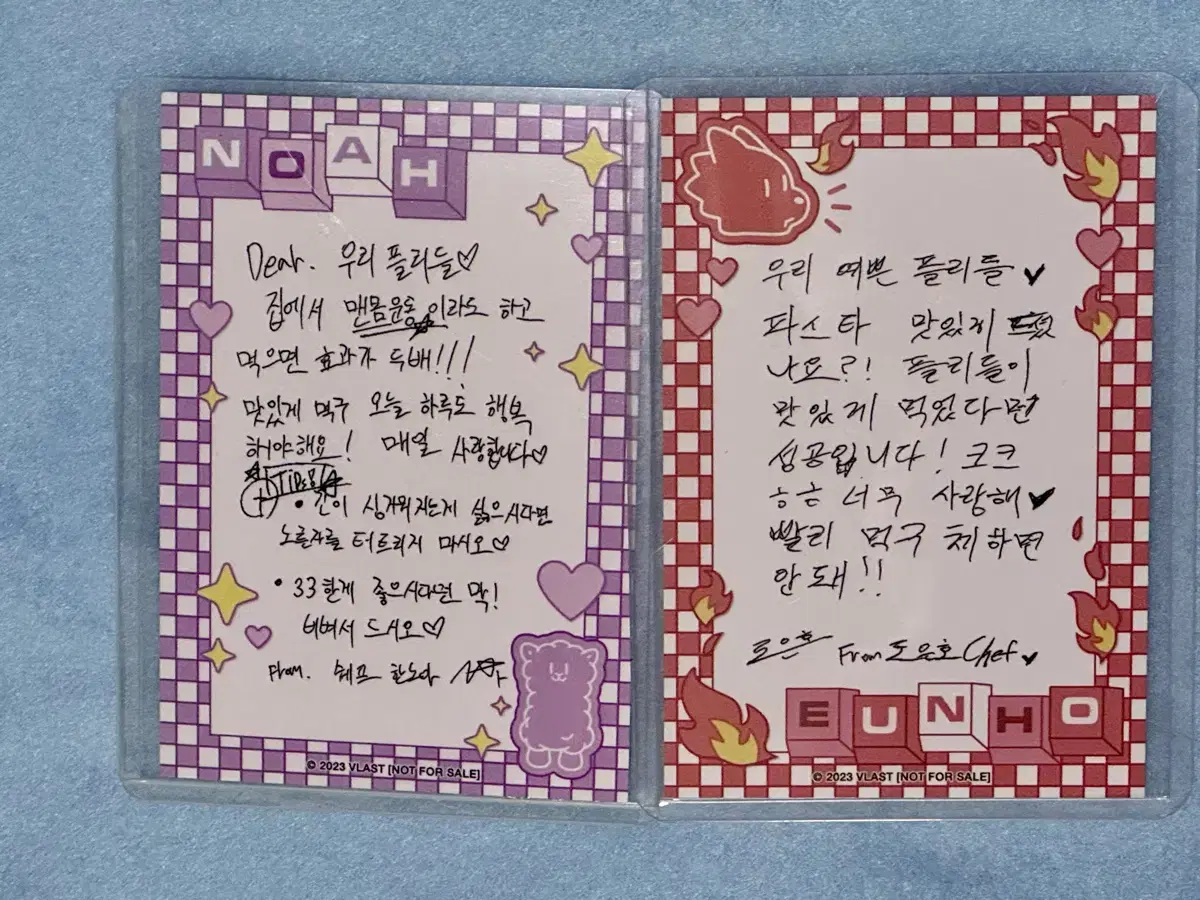 NOAH
Dear. 우리 플리들♡
집에서 맨몸운동이라도 하고
먹으면 효과가 두배!!!
맛있게 먹구 오늘 하루도 행복
해야해요! 매일 사랑합니다♡
+ TIP
• 간이 싱거워지는게 싫으시다면
노른자를 터트리지 마시오♡
• 33한게 좋으시다면 막!
비벼서 드시오♡
From. 쉐프 한노아
© 2023 VLAST [NOT FOR SALE]
우리 예쁜 플리들 ♥
파스타 맛있게
나요?! 플리들이
맛있게 먹었다면
성공입니다! 크크
ㅎㅎ 너무 사랑해♥
빨리 먹구 체하면
안돼!!
도은호 From 도은호 Chef ♥
EUNHO
© 2023 VLAST [NOT FOR SALE]